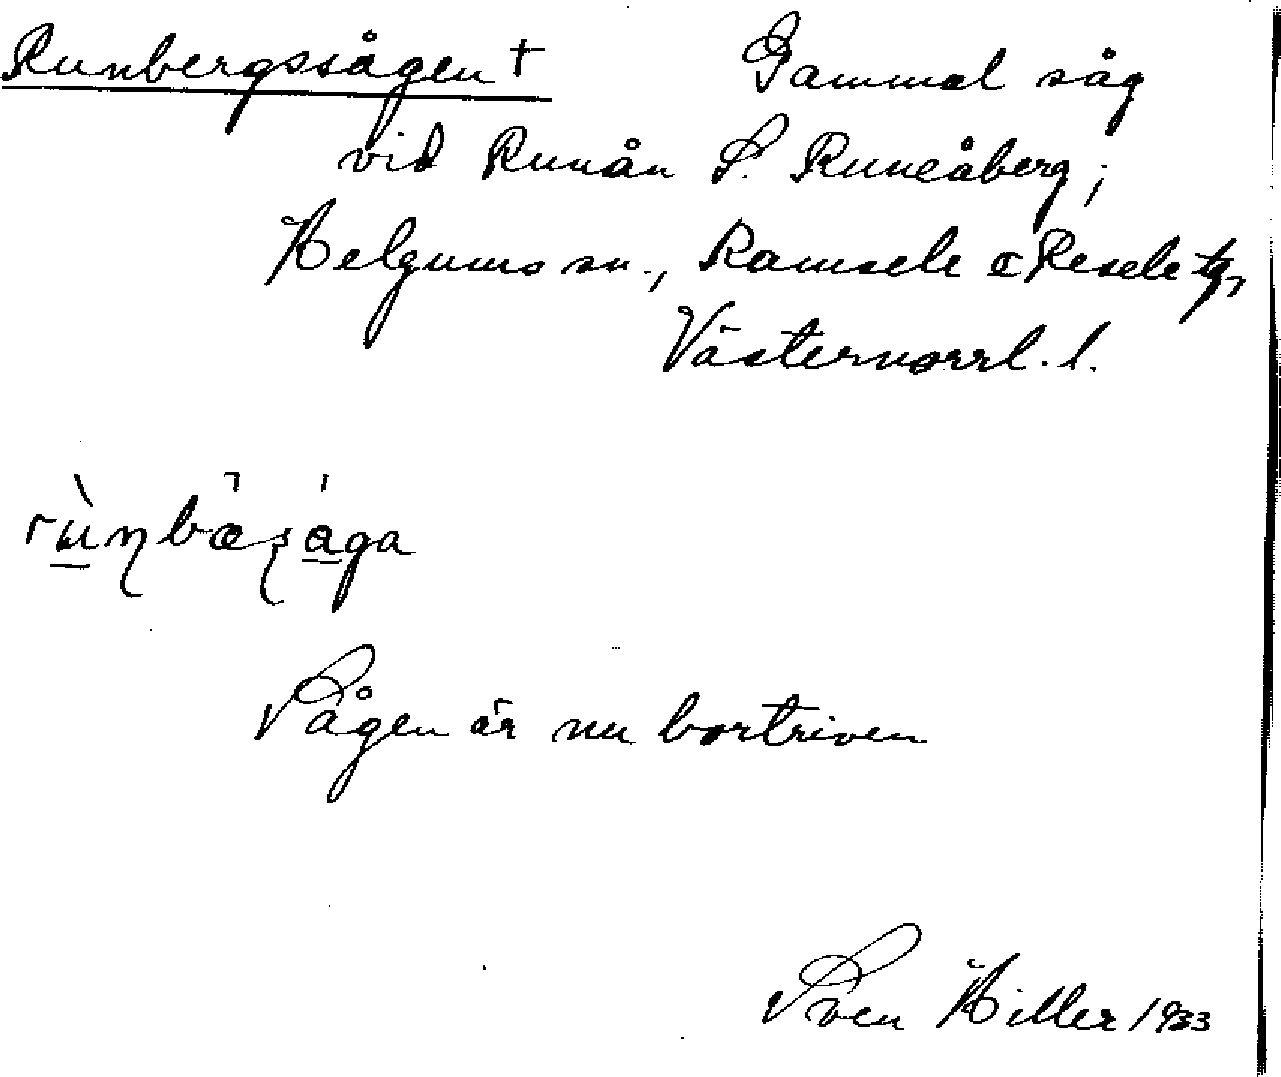 Runbergssågen † Gammal såg
vid Runån S. Runeåberg;
Helgums sn., Ramsele o Resele tg,
Västernorrl. l.
Sågen är nu bortriven
Sven Hiller 1933